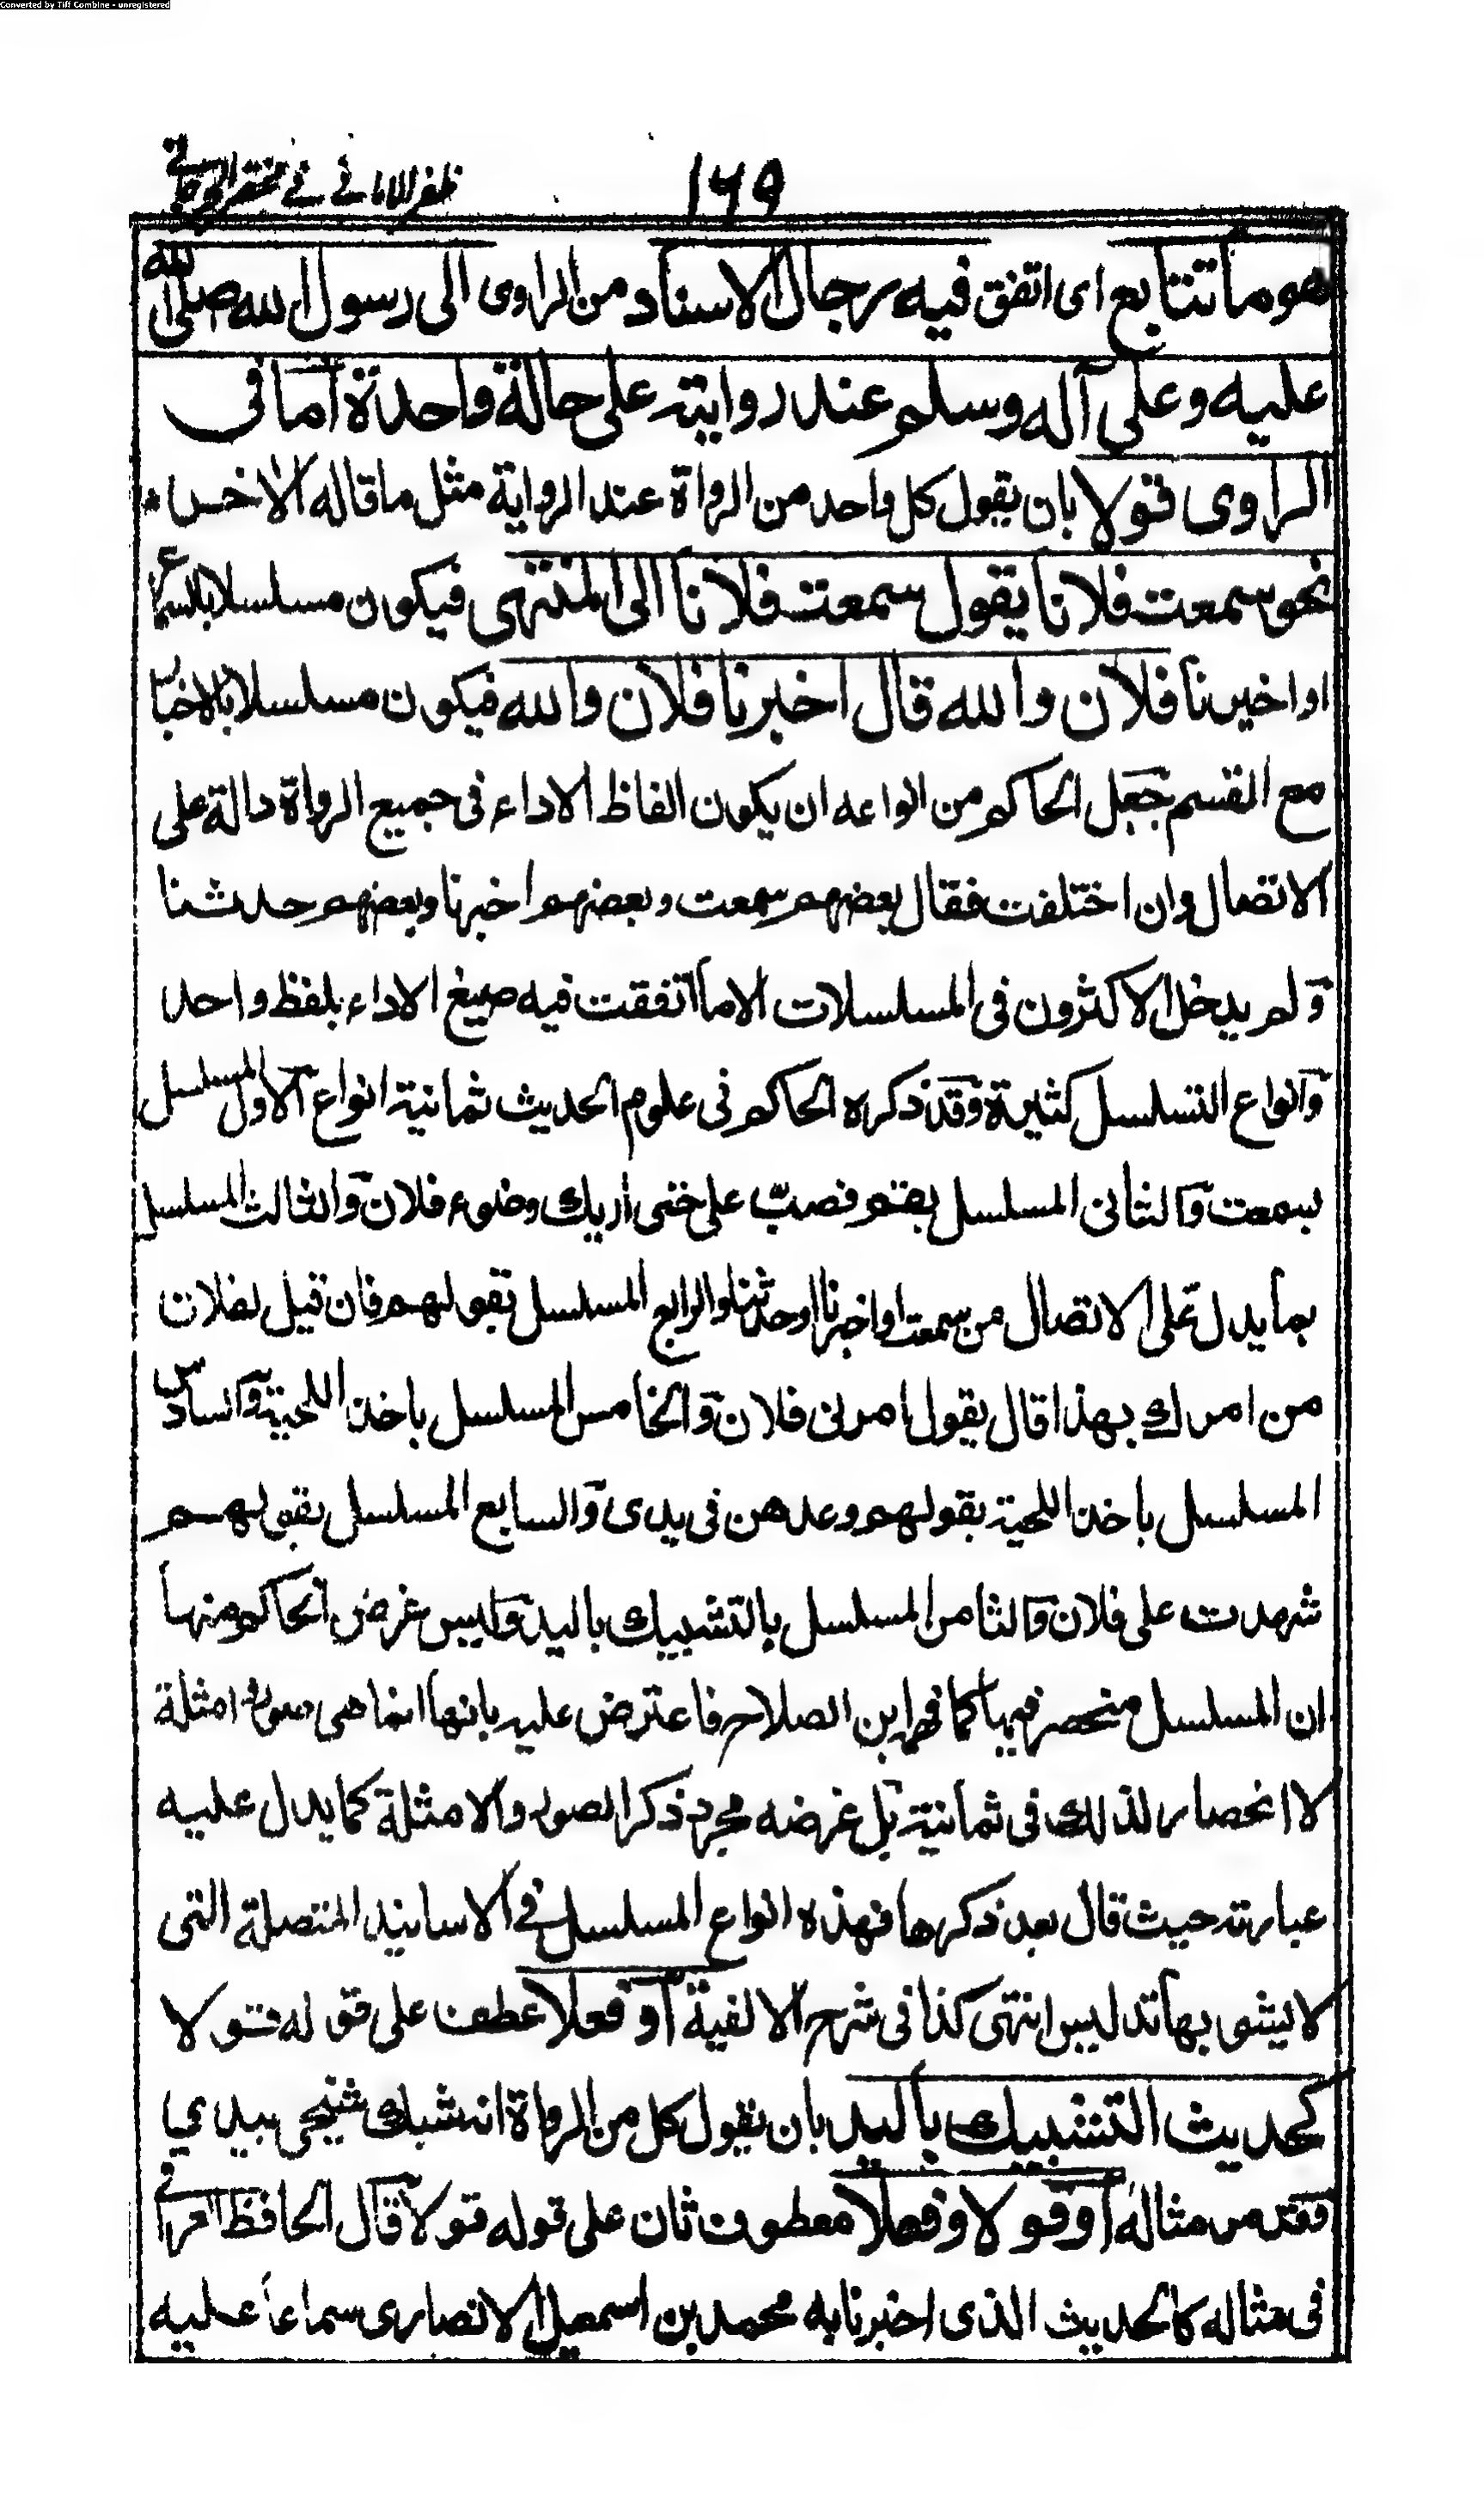 Converted by Tiff Combine - unregistered
ظفر الامانی فی مختصر الجرجانی
١٦٩
هو ما تتابع ای اتفق فیه رجال الاسناد من الراوی الی رسول الله صلی الله
علیه وعلی آله وسلم عند روایته علی حالة واحدة اما فی
الراوی قولا بان یقول کل واحد من الرواة عند الروایة مثل ما قاله الاخر
نحو سمعت فلانا یقول سمعت فلانا الی المنتهی فیکون مسلسلا بالسماع
او اخبرنا فلان والله قال اخبرنا فلان والله فیکون مسلسلا بالاخبار
مع القسم جعل الحاکم من انواعه ان یکون الفاظ الاداء فی جمیع الرواة دالة علی
الاتصال وان اختلفت فقال بعضهم سمعت وبعضهم اخبرنا وبعضهم حدثنا
ولم یدخل الاکثرون فی المسلسلات الا ما اتفقت فیه صیغ الاداء بلفظ واحد
وانواع التسلسل کثیرة وقد ذکره الحاکم فی علوم الحدیث ثمانیة انواع الاول المسلسل
بسمعت والثانی المسلسل بقم فصب علی حتی اریک وضوء فلان والثالث المسلسل
بما یدل علی الاتصال من سمعت او اخبرنا او حدثنا والرابع المسلسل بقولهم فان قیل لفلان
من امرک بهذا قال یقول امرنی فلان والخامس المسلسل باخذ اللحیة والسادس
المسلسل باخذ اللحیة بقولهم وعدهن فی یدی والسابع المسلسل بقولهم
شهدت علی فلان والثامن المسلسل بالتشبیک بالید ولیس غرض الحاکم منها
ان المسلسل منحصر فیها کما فهم ابن الصلاح فاعترض علیه بانها انما هی صور وامثلة
لا انحصار لذلک فی ثمانیة بل غرضه مجرد ذکر الصور والامثلة کما یدل علیه
عبارته حیث قال بعد ذکرها فهذه انواع المسلسل فی الاسانید المتصلة التی
لا یشوبها تدلیس انتهی کذا فی شرح الالفیة او فعلا عطف علی قوله قولا
کحدیث التشبیک بالید بان یقول کل من الرواة انه شبک شیخی بیدی
فقد مر مثاله او قولا وفعلا معطوف ثان علی قوله قولا قال الحافظ العراقی
فی مثاله کالحدیث الذی اخبرنا به محمد بن اسمعیل الانصاری سماعا علیه